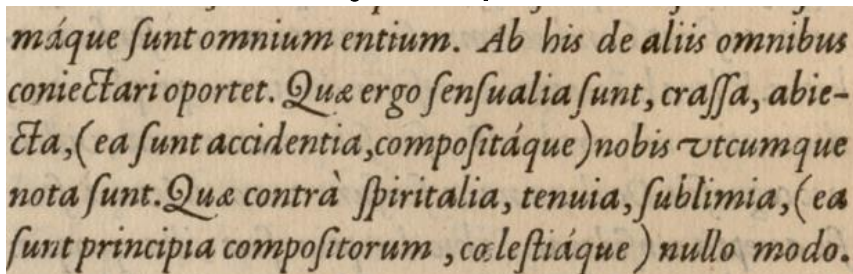 máque ſunt omnium entium. Ab his de aliis omnibus
coniectari oportet. Quæ ergo ſenſualia ſunt, craſſa, abie-
cta, (ea ſunt accidentia, compoſitáque) nobis vtcumque
nota ſunt. Quæ contrà ſpiritalia, tenuia, ſublimia, (ea
ſunt principia compoſitorum, cœleſtiáque) nullo modo.